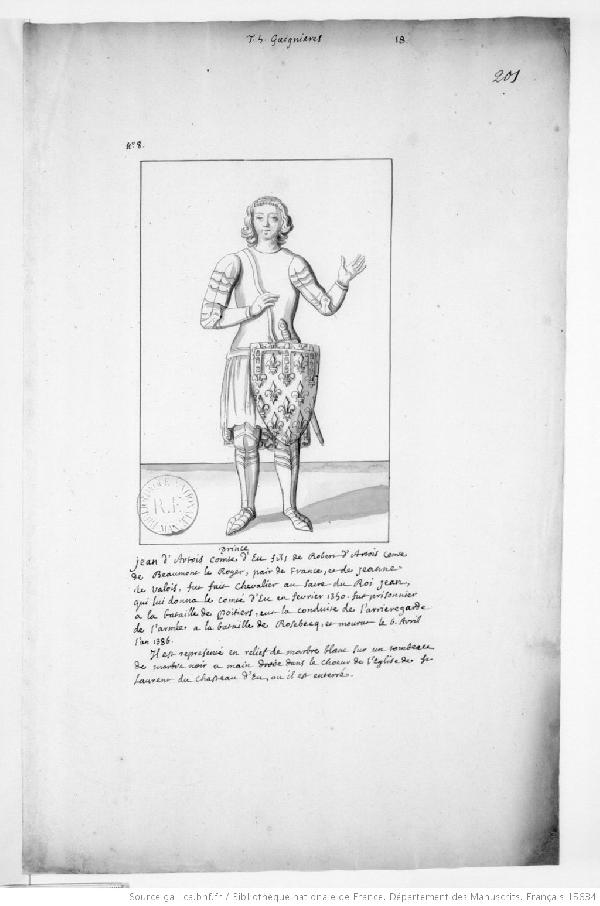 T. 4 Gaignieres 18
201
N.º 8.
BIBLIOTHEQUE NATIONALE
R.F.
MANUSCRITS
prince
Jean d'Artois Comte d'Eu fils de Robert d'Artois Comte
de Beaumont le Roger, pair de France, et de Jeanne
de Valois, fut fait Chevalier au Sacre du Roi Jean,
qui lui donna le Comté d'Eu en fevrier 1350. fut prisonnier
a la bataille de Poitiers, eut la conduite de l'arrieregarde
de l'armée a la bataille de Rosebecq, et mourut le 6. Avril
l'an 1386.
Il est representé en relief de marbre blanc sur un tombeau
de marbre noir a main droite dans le choeur de l'Eglise de St
Laurent du Chasteau d'Eu, ou il est enterré.
Source gallica.bnf.fr / Bibliothèque nationale de France. Département des Manuscrits. Français 15634